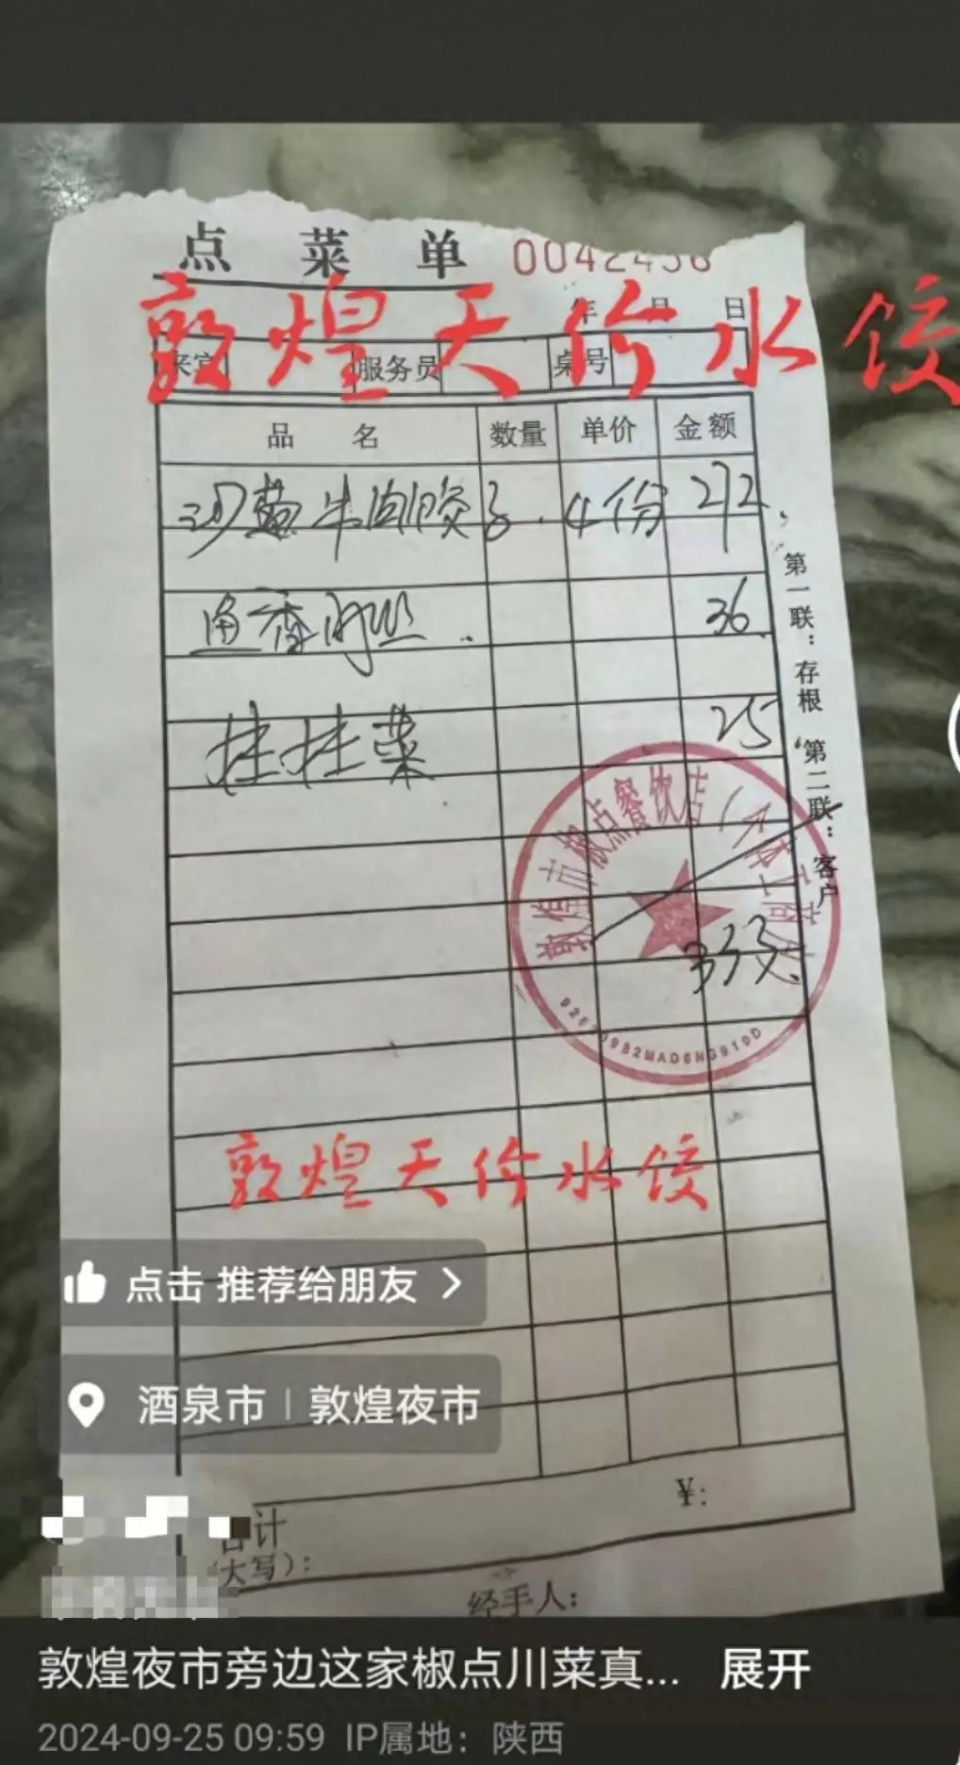 点菜单 0042436
敦煌天价水饺
年 月 日
来宾 服务员 桌号
品名 数量 单价 金额
沙葱牛肉饺子. 4份 272.
鱼香肉丝. 36.
挂挂菜 25
333.
第一联：存根 第二联：客户
敦煌市椒点餐饮店
敦煌天价水饺
点击 推荐给朋友 >
酒泉市 | 敦煌夜市
合计
(大写)： ¥:
经手人：
敦煌夜市旁边这家椒点川菜真... 展开
2024-09-25 09:59 IP属地：陕西